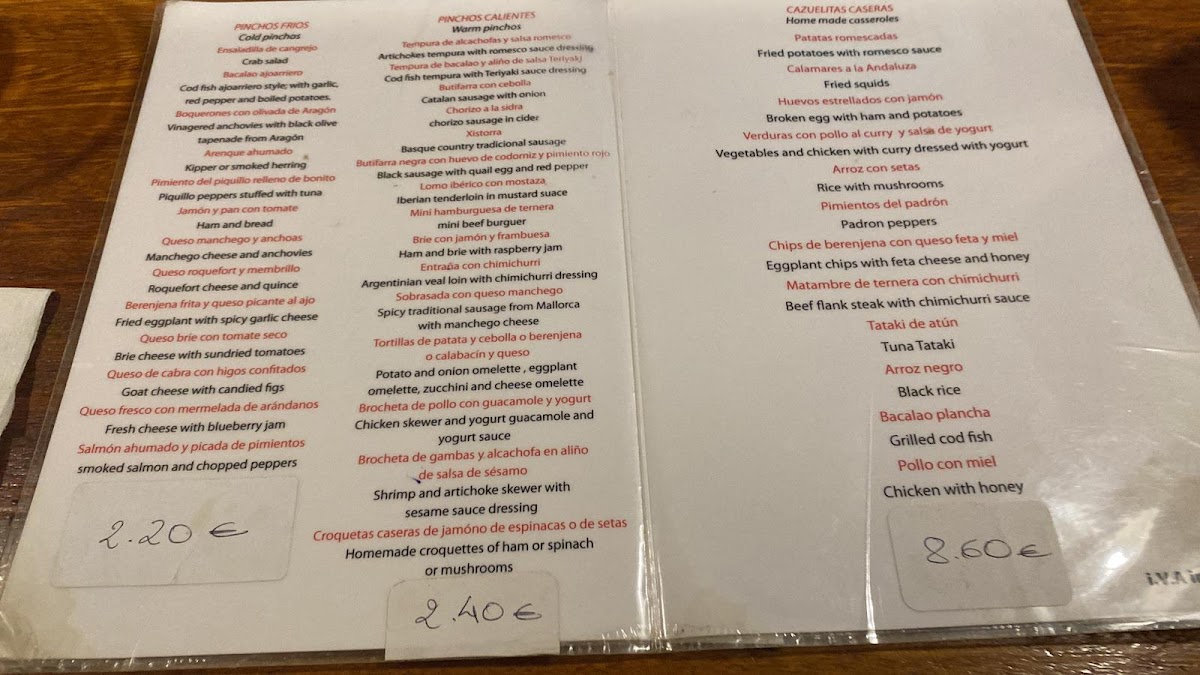 PINCHOS FRIOS
Cold pinchos
Ensaladilla de cangrejo
Crab salad
Bacalao ajoarriero
Cod fish ajoarriero style; with garlic,
red pepper and boiled potatoes.
Boquerones con olivada de Aragón
Vinagered anchovies with black olive
tapenade from Aragón
Arenque ahumado
Kipper or smoked herring
Pimiento del piquillo relleno de bonito
Piquillo peppers stuffed with tuna
Jamón y pan con tomate
Ham and bread
Queso manchego y anchoas
Manchego cheese and anchovies
Queso roquefort y membrillo
Roquefort cheese and quince
Berenjena frita y queso picante al ajo
Fried eggplant with spicy garlic cheese
Queso brie con tomate seco
Brie cheese with sundried tomatoes
Queso de cabra con higos confitados
Goat cheese with candied figs
Queso fresco con mermelada de arándanos
Fresh cheese with blueberry jam
Salmón ahumado y picada de pimientos
smoked salmon and chopped peppers
2.20 €
PINCHOS CALIENTES
Warm pinchos
Tempura de alcachofas y salsa romesco
Artichokes tempura with romesco sauce dressing
Tempura de bacalao y aliño de salsa Teriyaki
Cod fish tempura with Teriyaki sauce dressing
Butifarra con cebolla
Catalan sausage with onion
Chorizo a la sidra
chorizo sausage in cider
Xistorra
Basque country traditional sausage
Butifarra negra con huevo de codorniz y pimiento rojo
Black sausage with quail egg and red pepper
Lomo ibérico con mostaza
Iberian tenderloin in mustard suace
Mini hamburguesa de ternera
mini beef burguer
Brie con jamón y frambuesa
Ham and brie with raspberry jam
Entraña con chimichurri
Argentinian veal loin with chimichurri dressing
Sobrasada con queso manchego
Spicy traditional sausage from Mallorca
with manchego cheese
Tortillas de patata y cebolla o berenjena
o calabacín y queso
Potato and onion omelette , eggplant
omelette, zucchini and cheese omelette
Brocheta de pollo con guacamole y yogurt
Chicken skewer and yogurt guacamole and
yogurt sauce
Brocheta de gambas y alcachofa en aliño
de salsa de sésamo
Shrimp and artichoke skewer with
sesame sauce dressing
Croquetas caseras de jamóno de espinacas o de setas
Homemade croquettes of ham or spinach
or mushrooms
2.40 €
CAZUELITAS CASERAS
Home made casseroles
Patatas romescadas
Fried potatoes with romesco sauce
Calamares a la Andaluza
Fried squids
Huevos estrellados con jamón
Broken egg with ham and potatoes
Verduras con pollo al curry y salsa de yogurt
Vegetables and chicken with curry dressed with yogurt
Arroz con setas
Rice with mushrooms
Pimientos del padrón
Padron peppers
Chips de berenjena con queso feta y miel
Eggplant chips with feta cheese and honey
Matambre de ternera con chimichurri
Beef flank steak with chimichurri sauce
Tataki de atún
Tuna Tataki
Arroz negro
Black rice
Bacalao plancha
Grilled cod fish
Pollo con miel
Chicken with honey
8.60 €
I.V.A